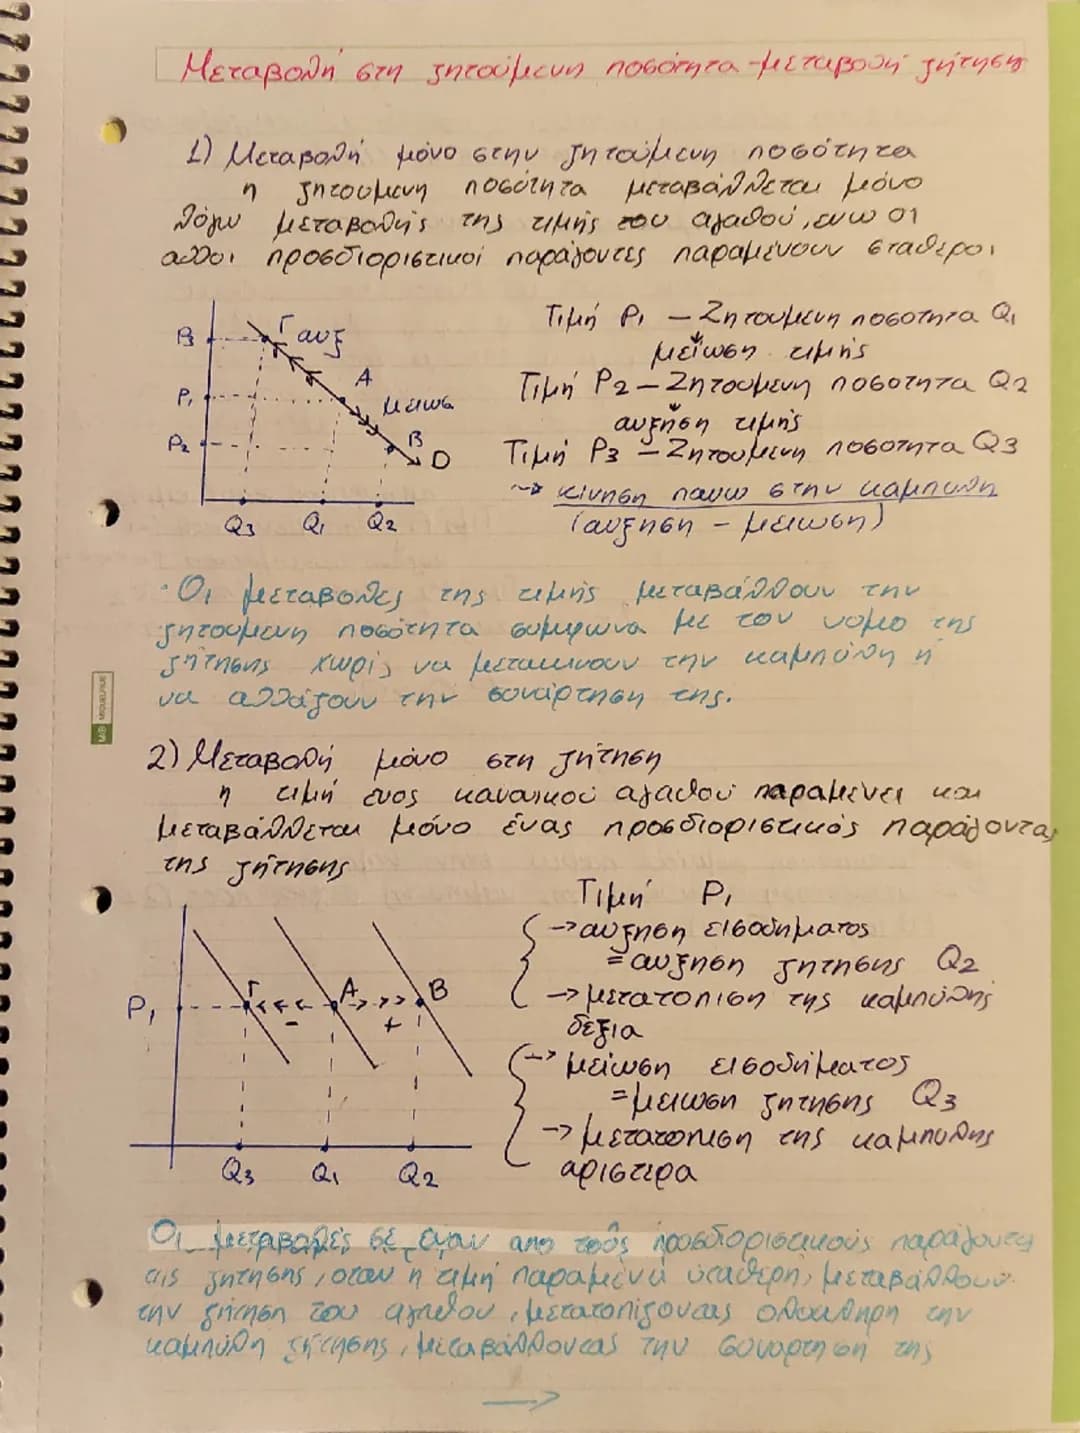 Μεταβολή στη ζητούμενη ποσότητα - μεταβολή ζήτησης
1) Μεταβολή μόνο στην ζητούμενη ποσότητα
η ζητουμενη ποσότητα μεταβάλλεται μόνο
λόγω μεταβολής της τιμής του αγαθού, ενω οι
αλλοι προσδιοριστικοί παράγοντες παραμένουν σταθεροι
P3 Γ αυξ
P1 Α
μειωσ
P2 Β
D
Q3 Q1 Q2
Τιμή P1 - Ζητουμενη ποσοτητα Q1
μείωση τιμής
Τιμή P2 - Ζητουμενη ποσοτητα Q2
αυξηση τιμής
Τιμή P3 - Ζητουμενη ποσοτητα Q3
~> κίνηση πανω στην καμπυλη
(αυξηση - μειωση)
· Οι μεταβολες της τιμής μεταβάλλουν την
ζητουμενη ποσότητα συμφωνα με τον νομο της
ζήτησης χωρίς να μετακινουν την καμπύλη ή
να αλλάζουν την συνάρτηση της.
MB MIQUELRIUS
2) Μεταβολή μόνο στη ζήτηση
η τιμή ενος κανονικού αγαθού παραμένει και
μεταβάλλεται μόνο ένας προσδιοριστικός παράγοντας
της ζήτησης
P1 Γ Α Β
- +
Q3 Q1 Q2
Τιμή P1
-> αυξηση εισοδηματος
= αυξηση ζητησης Q2
-> μετατοπιση της καμπύλης
δεξια
-> μείωση εισοδήματος
= μειωση ζητησης Q3
-> μετατοπιση της καμπυλης
αριστερα
Οι μεταβολές σε εναν απο τους προσδιοριστικούς παράγοντες
της ζητησης, οταν η τιμή παραμένει σταθερή, μεταβάλλουν
την ζήτηση του αγαθου, μετατοπίζοντας ολοκληρη την
καμπύλη ζήτησης, μεταβάλλοντας την συναρτηση της
→